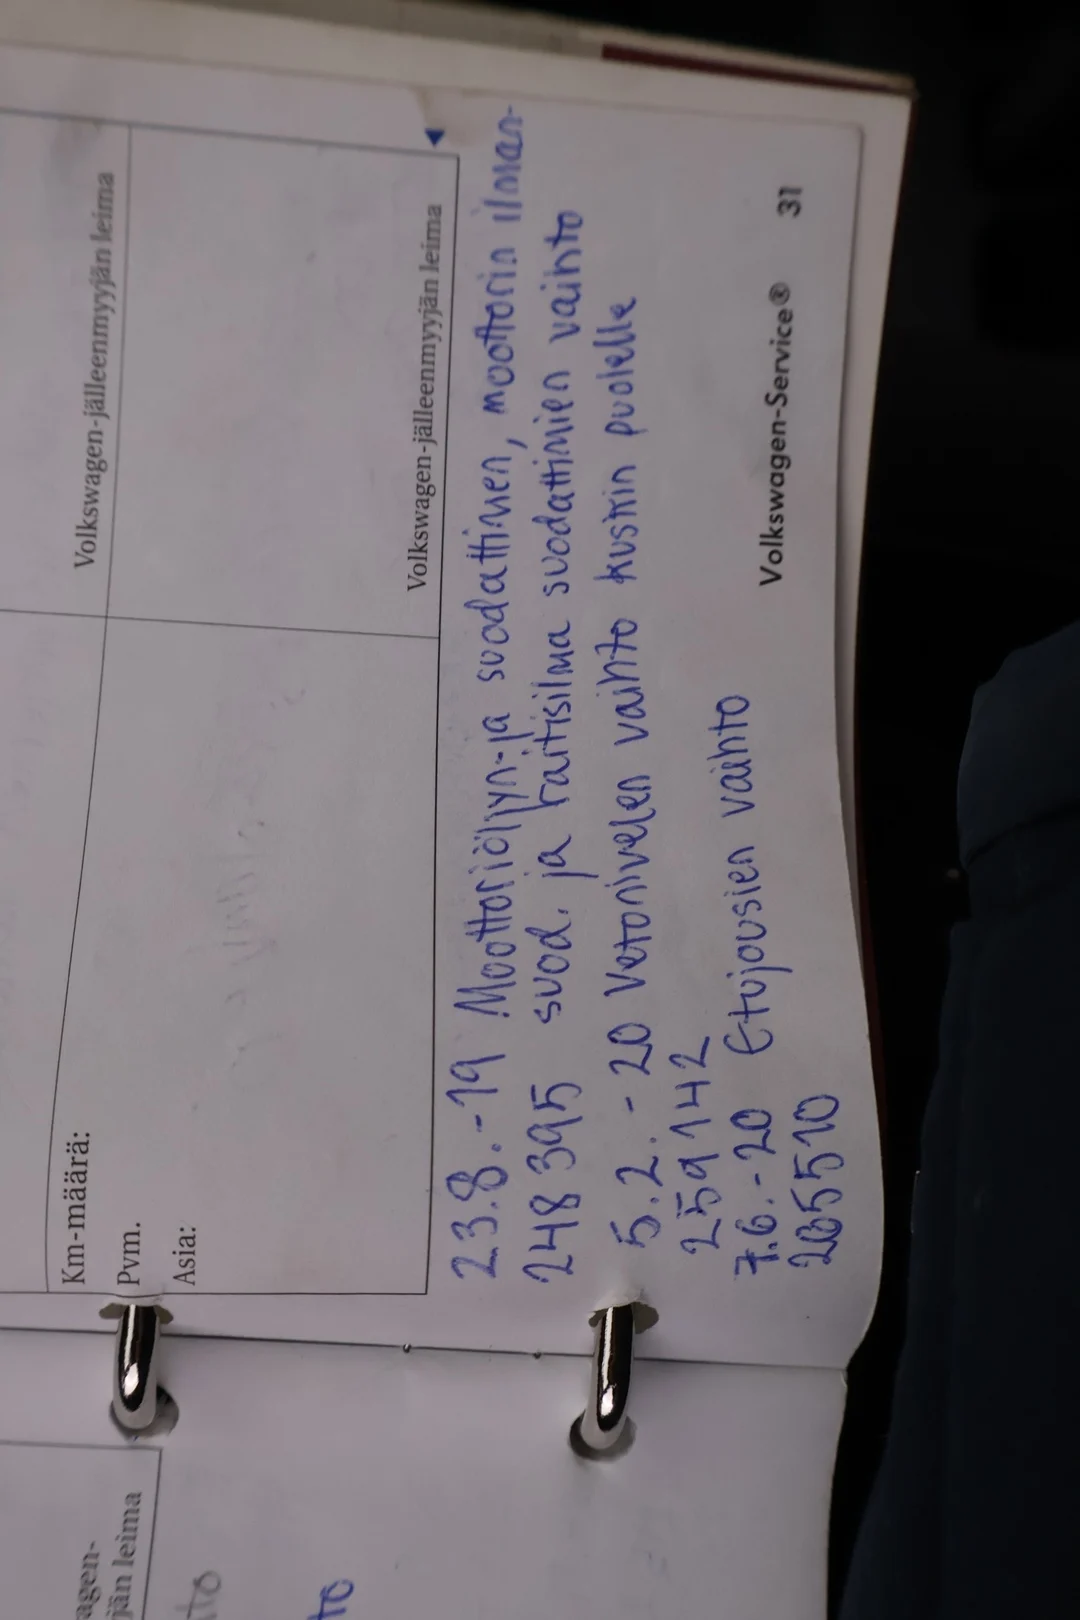 Volkswagen-jälleenmyyjän leima
Km-määrä:
Pvm.
Asia:
Volkswagen-jälleenmyyjän leima
23.8.-19 Moottoriöljyn-ja suodattimen, moottorin ilman-
248 395 suod. ja raitisilma suodattimien vaihto
5.2.-20 Vetonivelen vaihto kuskin puolelle
259 142
7.6.-20 Etujousien vaihto
265510
Volkswagen-Service® 31
agen-
jän leima
to
to